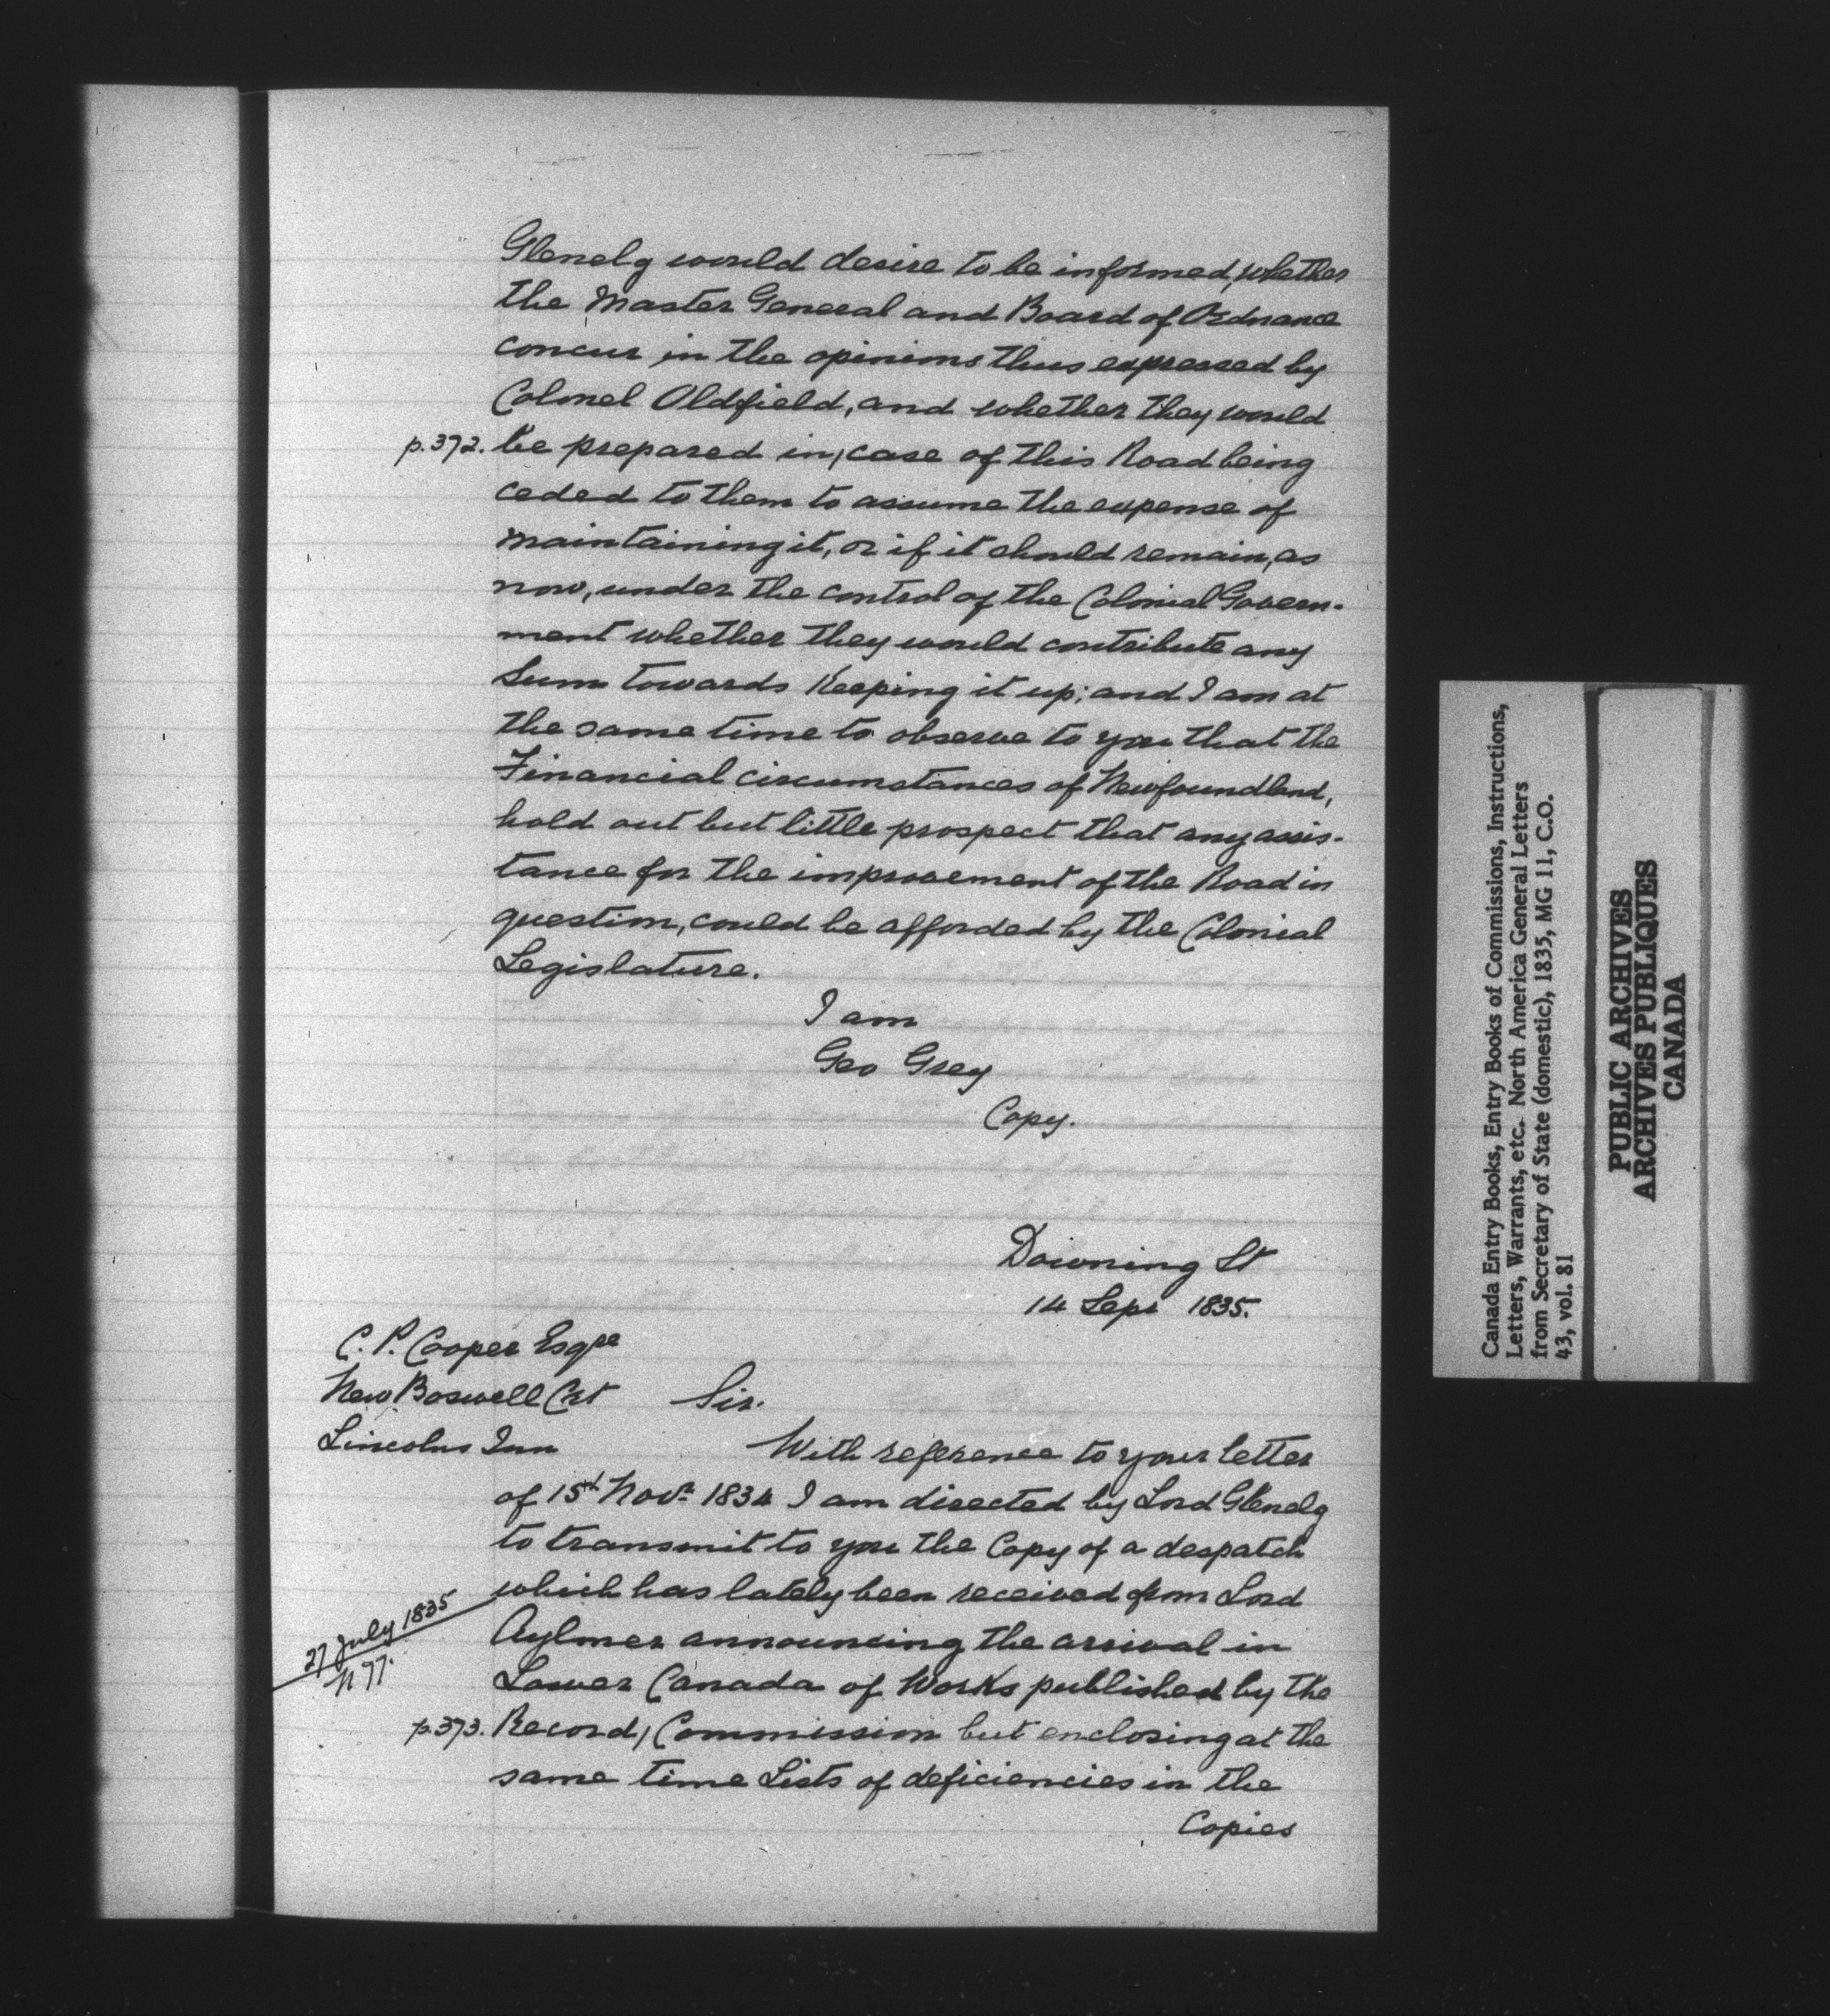 Glenelg would desire to be informed, whether
the Master General and Board of Ordnance
concur in the opinions thus expressed by
Colonel Oldfield, and whether they would
p.372. be prepared in, case of this Road being
ceded to them to assume the expense of
maintaining it, or if it should remain, as
now, under the control of the Colonial Govern-
ment whether they would contribute any
Sum towards Keeping it up; and I am at
the same time to observe to you that the
Financial circumstances of Newfoundland,
hold out but little prospect that any assis-
tance for the improvement of the Road in
question, could be afforded by the Colonial
Legislature.
I am
Geo Grey
Copy.
Downing St
14 Sept 1835.
C. P. Cooper Esqre
New Boswell Crt
Lincolns Inn
Sir.
With reference to your letter
of 15th Novr. 1834 I am directed by Lord Glenelg
to transmit to you the Copy of a despatch
which has lately been received from Lord
27 July 1835
N 77.
Aylmer announcing the arrival in
Lower Canada of Works published by the
p.373. Record, Commission but enclosing at the
same time Lists of deficiencies in the
Copies
Canada Entry Books, Entry Books of Commissions, Instructions,
Letters, Warrants, etc. North America General Letters
from Secretary of State (domestic), 1835, MG 11, C.O.
43, vol. 81
PUBLIC ARCHIVES
ARCHIVES PUBLIQUES
CANADA